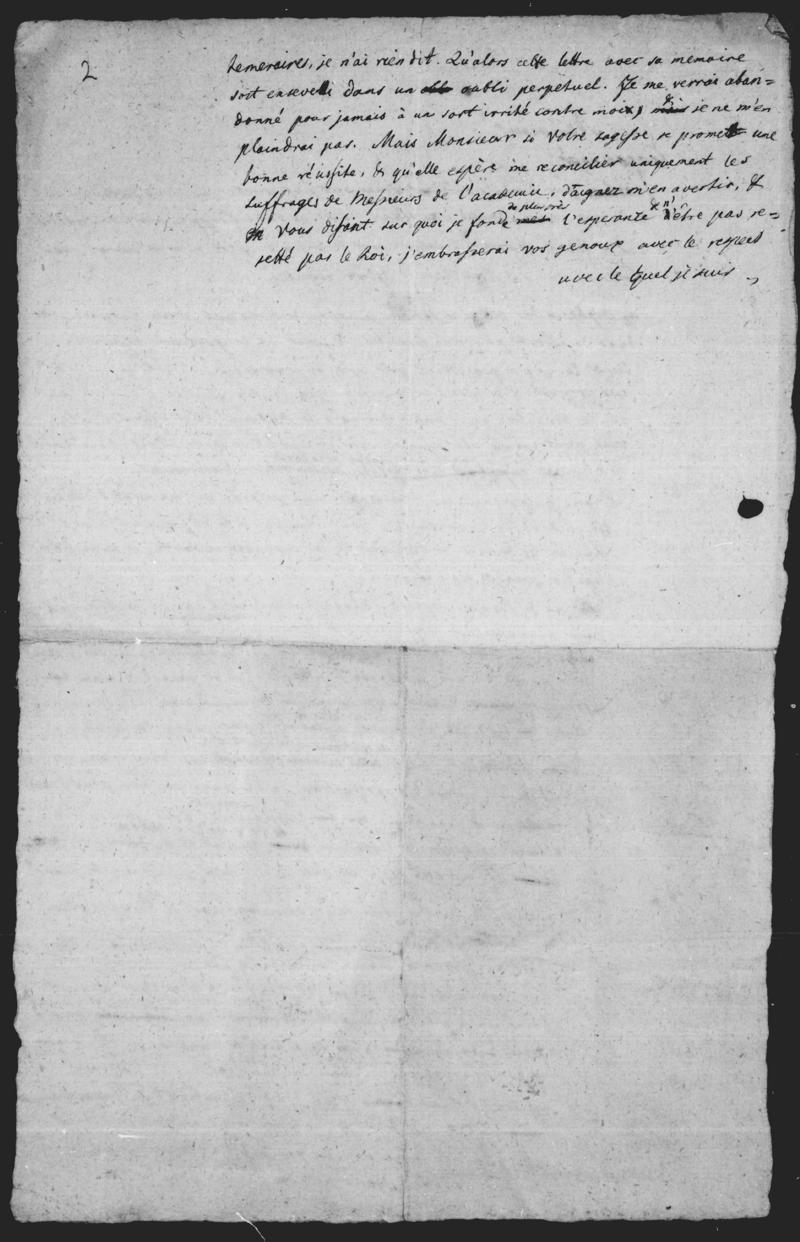 2
temeraires, je n'ai rien dit. Qu'alors cette lettre avec sa memoire
soit enseveli dans un oubli perpetuel. Je me verrai aban=
donné pour jamais à un sort irrité contre moi, & je ne m'en
plaindrai pas. Mais Monsieur si votre sagesse se promet une
bonne réussite, & qu'elle espère me reconcilier uniquement les
suffrages de Messieurs de l'academie, daignez m'en avertir, &
en vous disant sur quoi je fonde de plus près l'esperance n'être pas re=
jetté par le Roi, j'embrasserai vos genoux avec le respect
avec le quel je suis